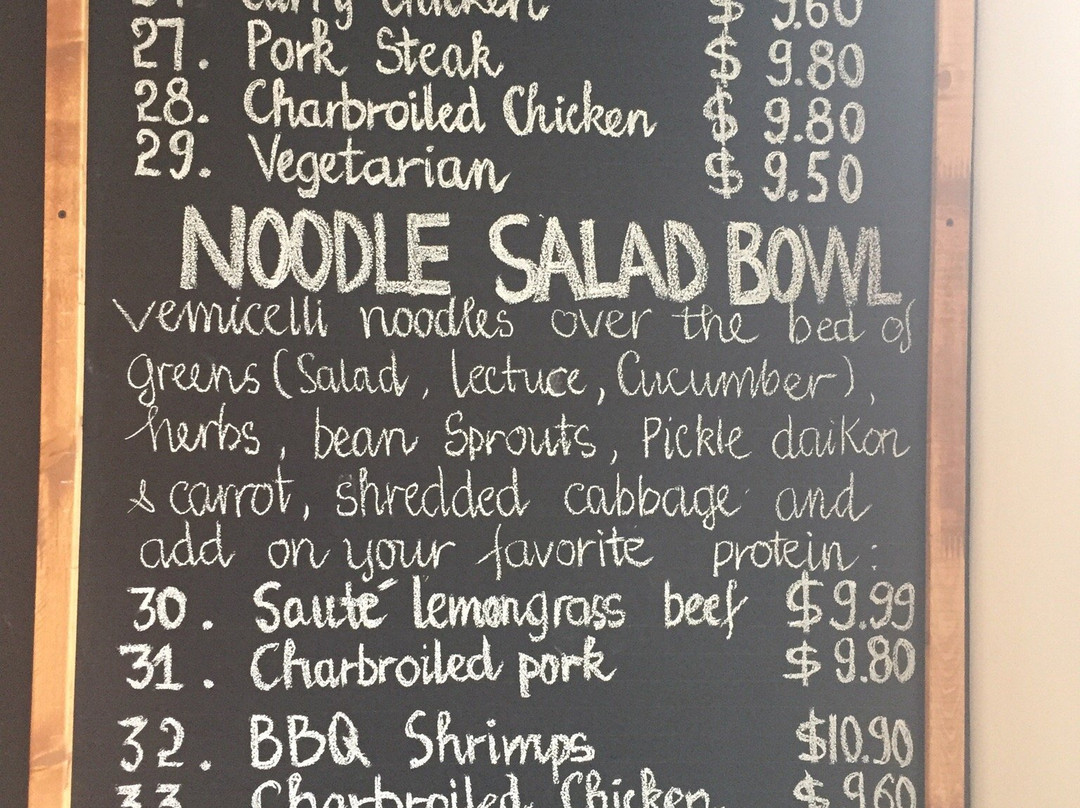 Curry Chicken $ 9.60
27. Pork Steak $ 9.80
28. Charbroiled Chicken $ 9.80
29. Vegetarian $ 9.50
NOODLE SALAD BOWL
Vemicelli noodles over the bed of
greens (Salad, lectuce, Cucumber),
herbs, bean Sprouts, Pickle daikon
& carrot, shredded cabbage and
add on your favorite protein:
30. Sauté lemongrass beef $9.99
31. Charbroiled pork $ 9.80
32. BBQ Shrimps $10.90
33. Charbroiled Chicken $ 9.60